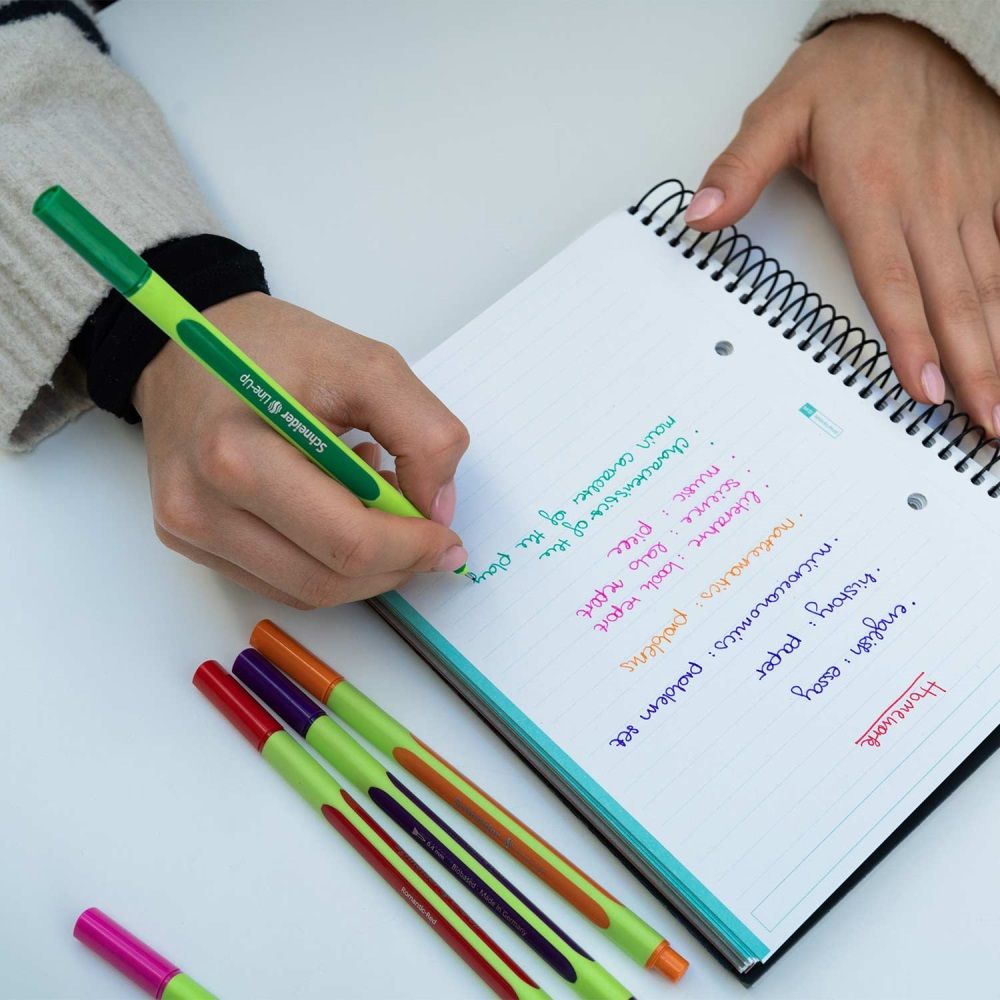 Homework
· english : essay
· history : paper
· microeconomics : problem set
· matematics : problems
· literature : book report
science : lab report
· music : piece
· characteristics of the
main caracters of the play
Schneider Line-Up
0.4 mm Biobased · Made in Germany
Romantic-Red